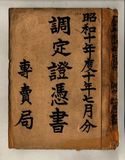 昭和十年度十年七月分
調定證憑書
專賣局